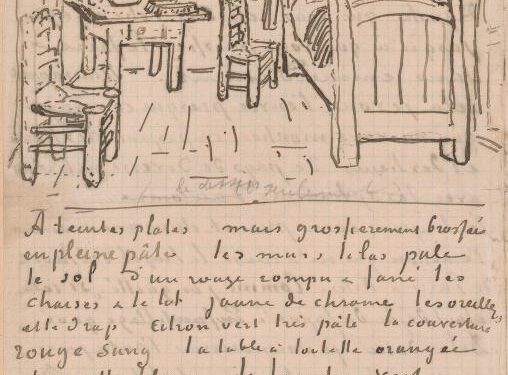 A teintes plates mais grossierement brossées
en pleine pâte les murs lilas pale
le sol d'un rouge rompu & fané les
chaises & le lit jaune de chrome les oreillers
et le drap citron vert très pâle la couverture
rouge sang la table à toilette orangée